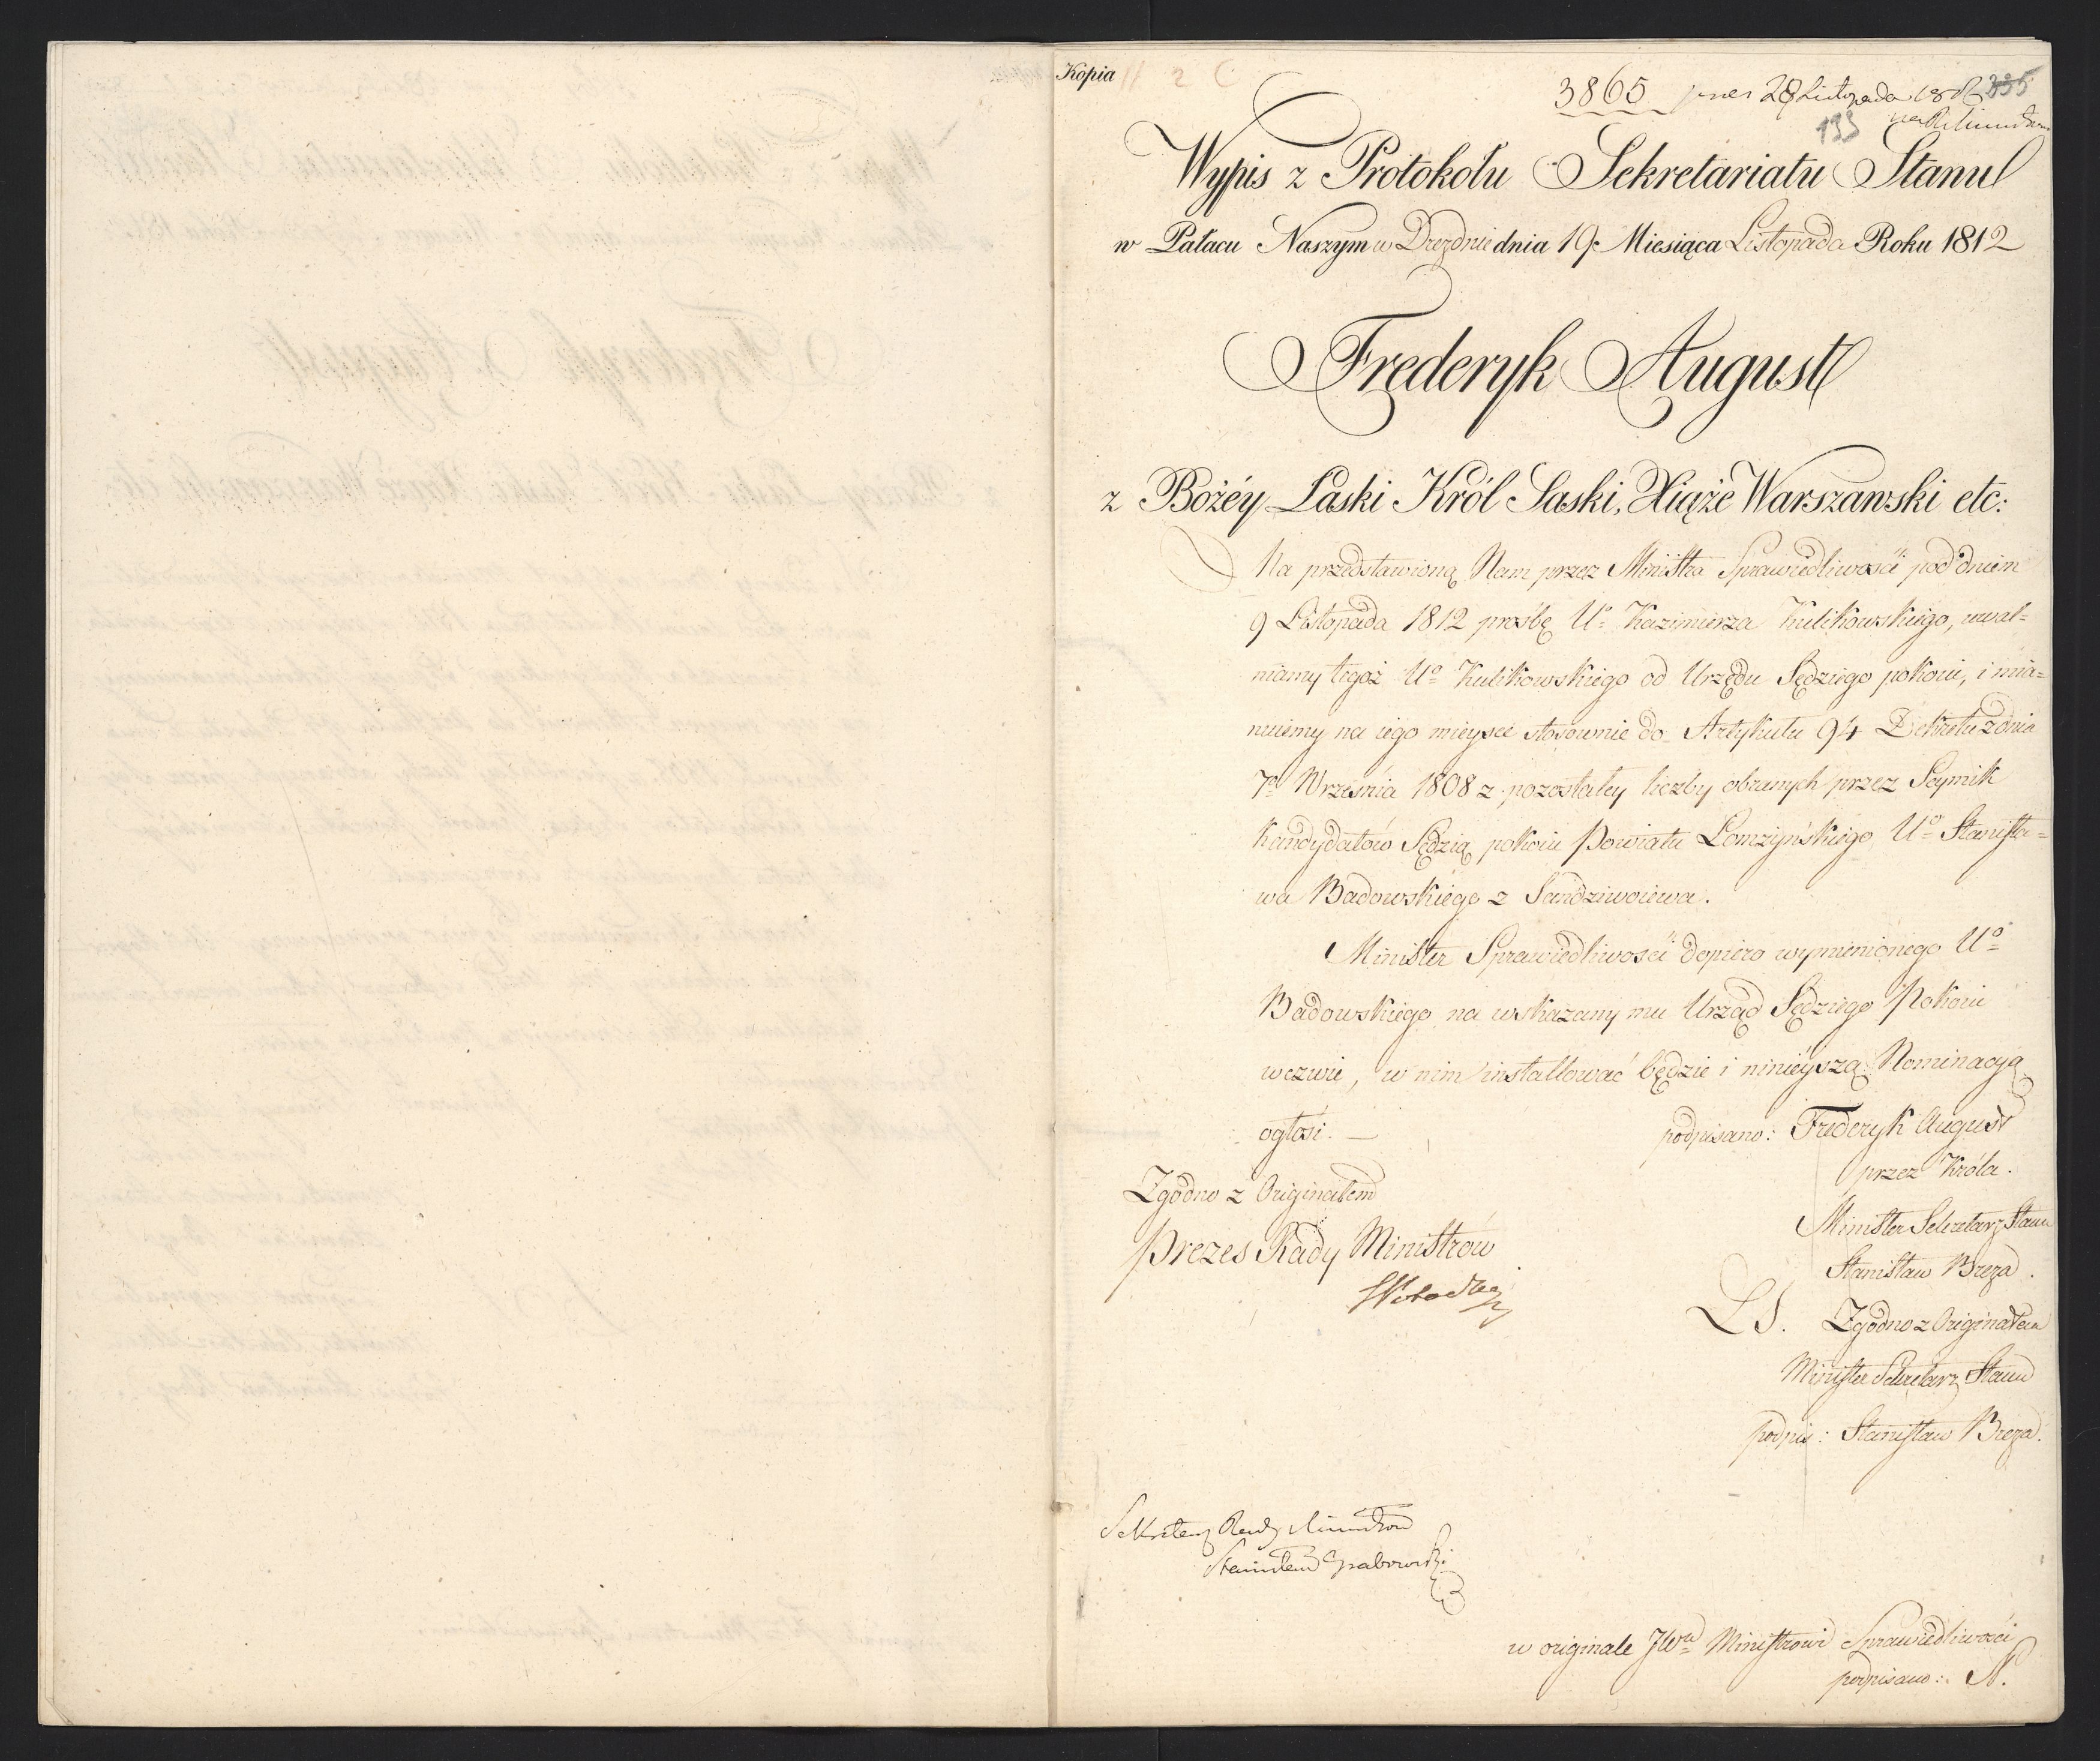 Kopia
3865 28 Listopada 1812 335
133
Wypis z Protokołu Sekretariatu Stanu
w Pałacu Naszym w Dreznie dnia 19 Miesiąca Listopada Roku 1812
Frederyk August
z Bożéy Łaski Król Saski, Xiąże Warszawski etc:
Na przedstawioną Nam przez Ministra Sprawiedliwości pod dniem
9 Listopada 1812 prośbę Uo Kazimierza Kulikowskiego, uwal=
niamy tegoż Uo Kulikowskiego od Urzędu Sędziego pokoiu, i mia=
nuiemy na iego mieysce stosownie do Artykułu 94 Dekretu z dnia
7o Września 1808 z pozostałey liczby obranych przez Seymik
Kandydatów Sędzią pokoiu Powiatu Łomzyńskiego Uo Stanisła=
wa Badowskiego z Sandziwoiewa.
Minister Sprawiedliwości dopiero wymienionego Uo
Badowskiego na wskazany mu Urząd Sędziego Pokoiu
wezwie, w nim installować będzie i ninieyszą Nominacyą
ogłosi. —
podpisano: Frederyk August
przez Króla.
Minister Sekretarz Stanu
Stanisław Breza.
LS. Zgodno z Originałem
Minister Sekretarz Stanu
podpis: Stanisław Breza.
Zgodno z Originałem
Prezes Rady Ministrów
Sekretarz Rady Ministrów
Stanisław Grabowski
w originale JWu Ministrowi Sprawiedliwości
podpisano: N.